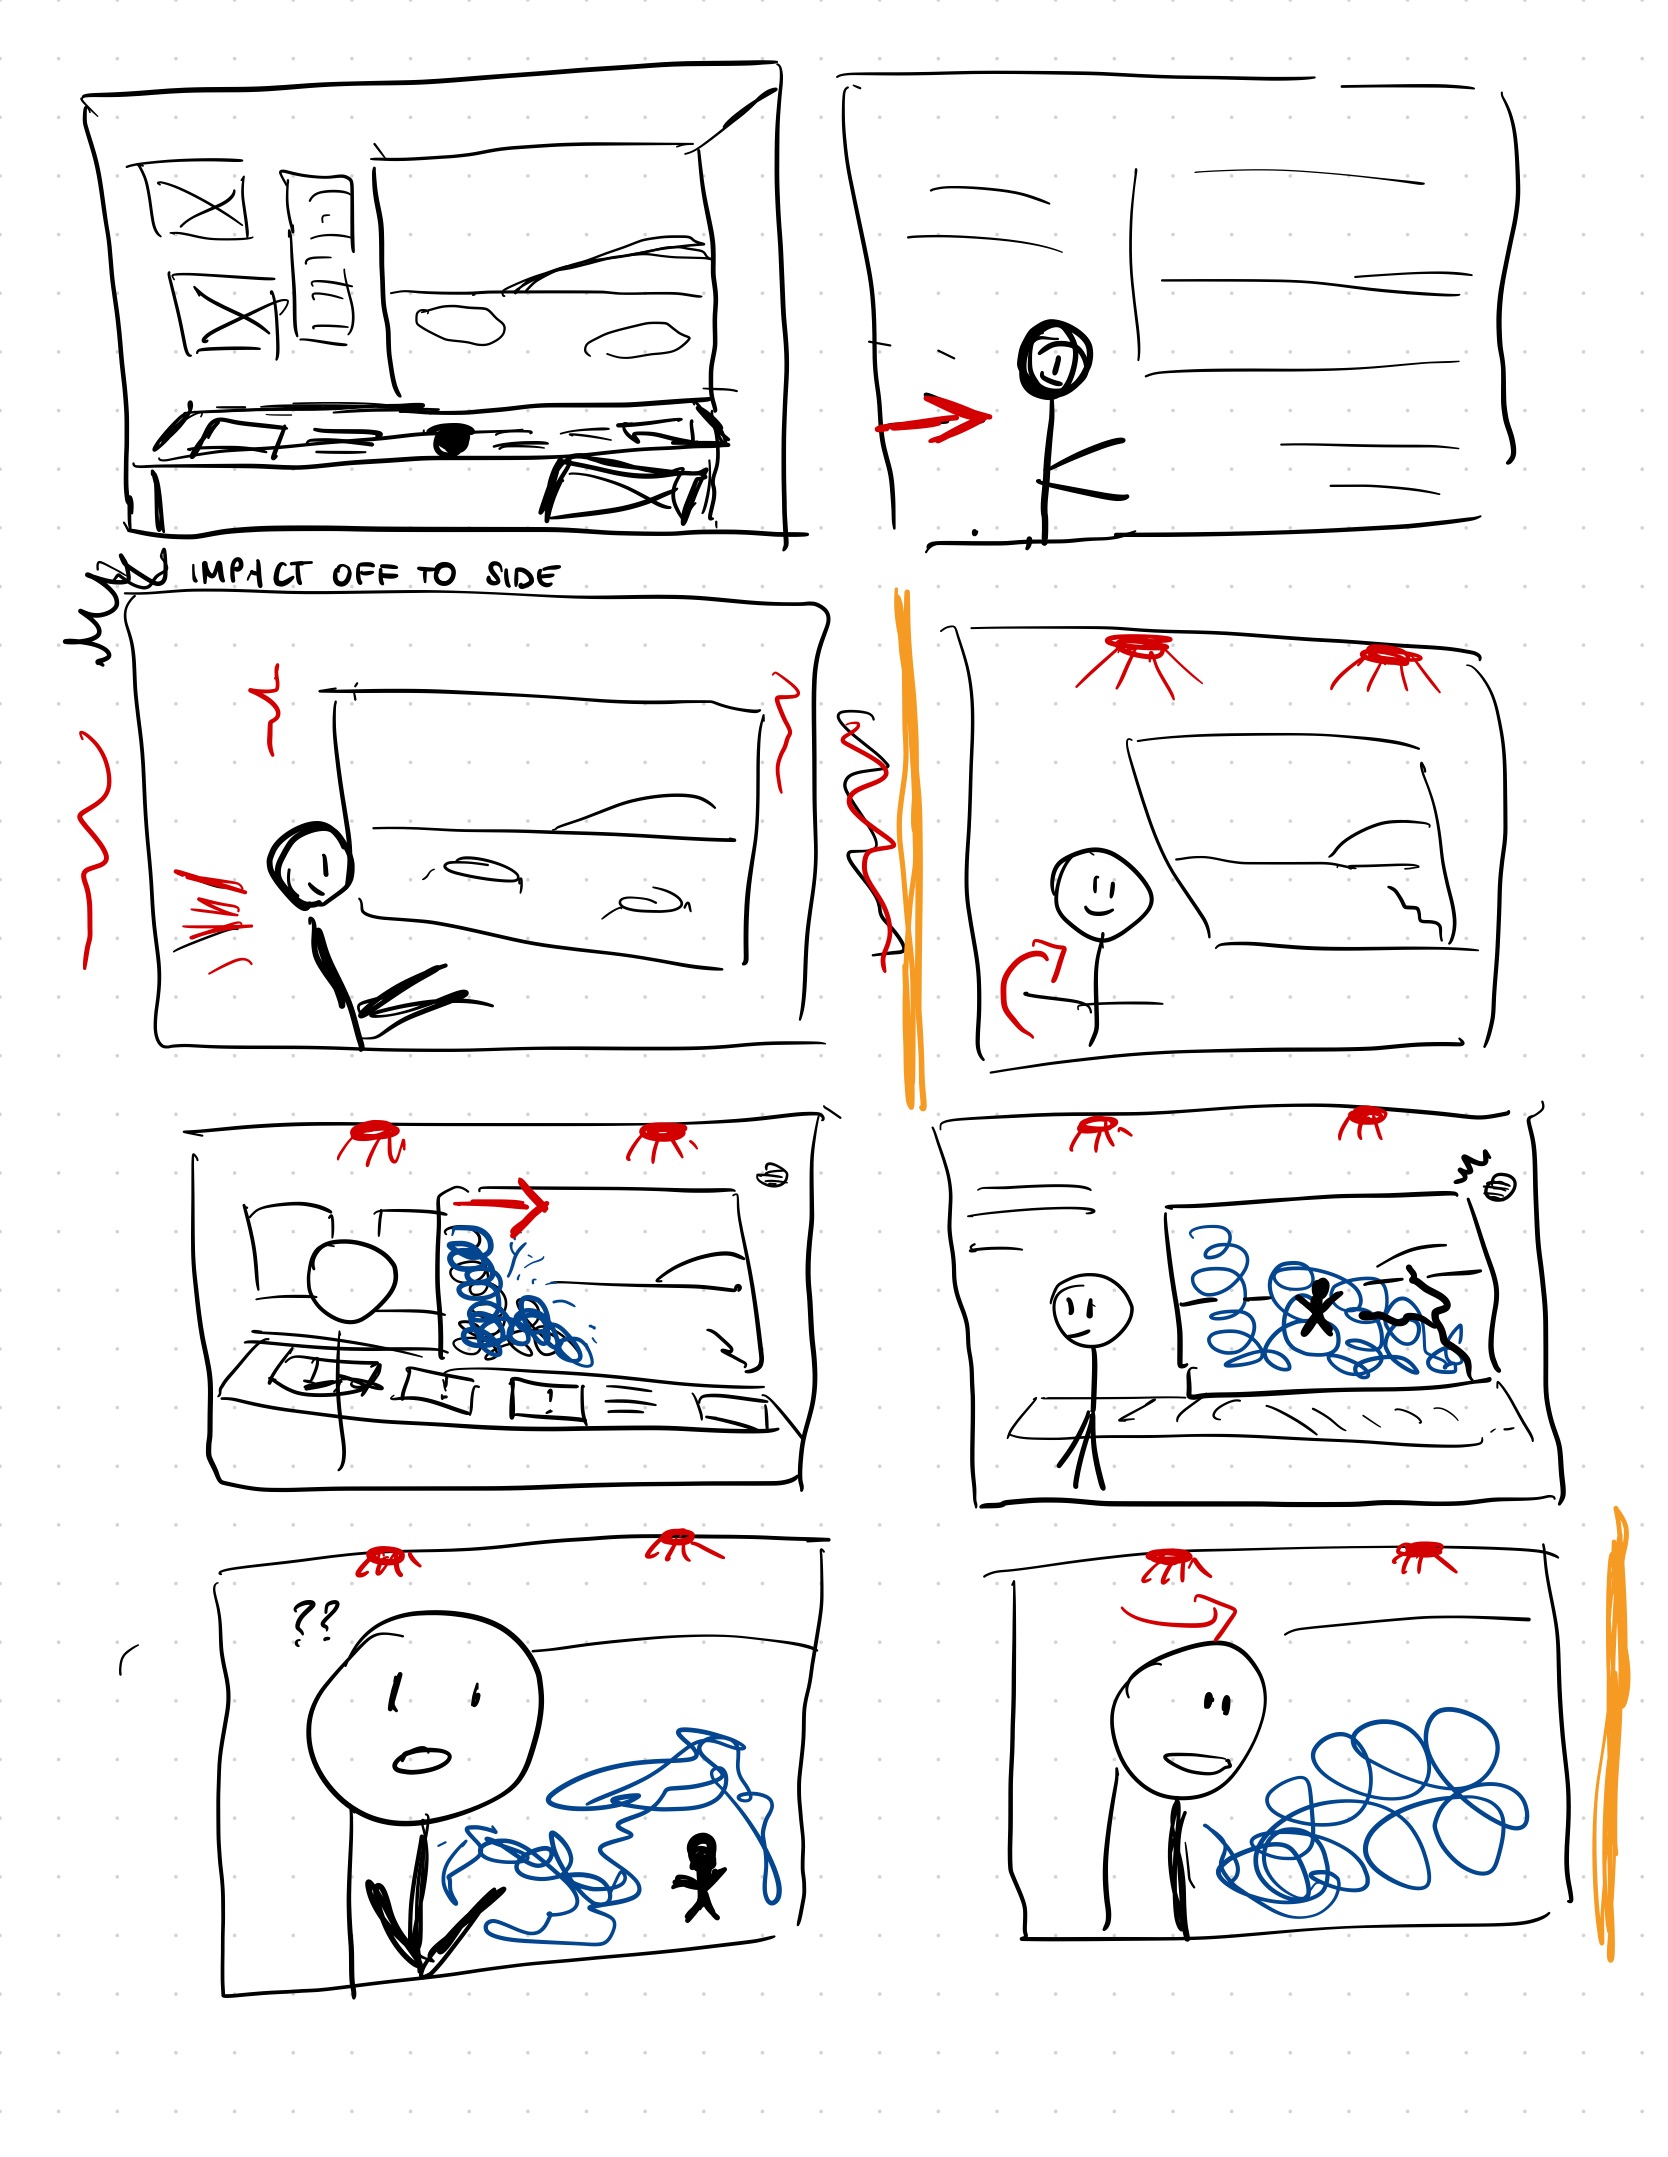 IMPACT OFF TO SIDE
??